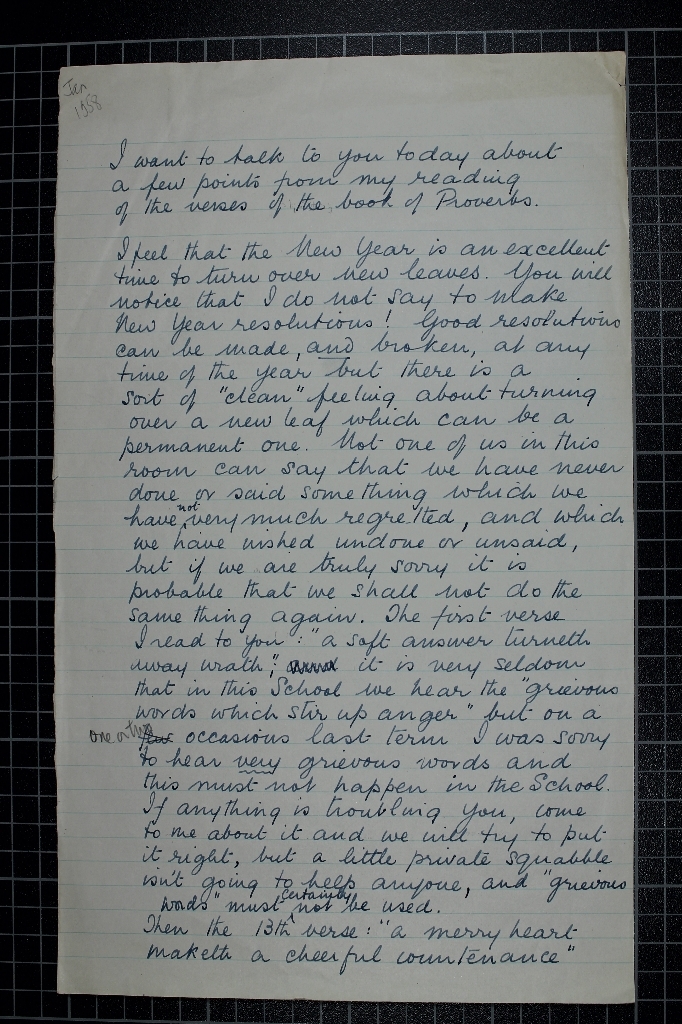 Jan
1958
I want to talk to you today about
a few points from my reading
of the verses of the book of Proverbs.
I feel that the New Year is an excellent
time to turn over new leaves. You will
notice that I do not say to make
New Year resolutions! Good resolutions
can be made, and broken, at any
time of the year but there is a
sort of "clean" feeling about turning
over a new leaf which can be a
permanent one. Not one of us in this
room can say that we have never
done or said something which we
have not very much regretted, and which
we have wished undone or unsaid,
but if we are truly sorry it is
probable that we shall not do the
same thing again. The first verse
I read to you: "a soft answer turneth
away wrath"; it is very seldom
that in this School we hear the "grievous
words which stir up anger" but on a
one or two occasions last term I was sorry
to hear very grievous words and
this must not happen in the School.
If anything is troubling you, come
to me about it and we will try to put
it right, but a little private squabble
isn't going to help anyone, and "grievous
words" must certainly not be used.
Then the 13th verse: "a merry heart
maketh a cheerful countenance"